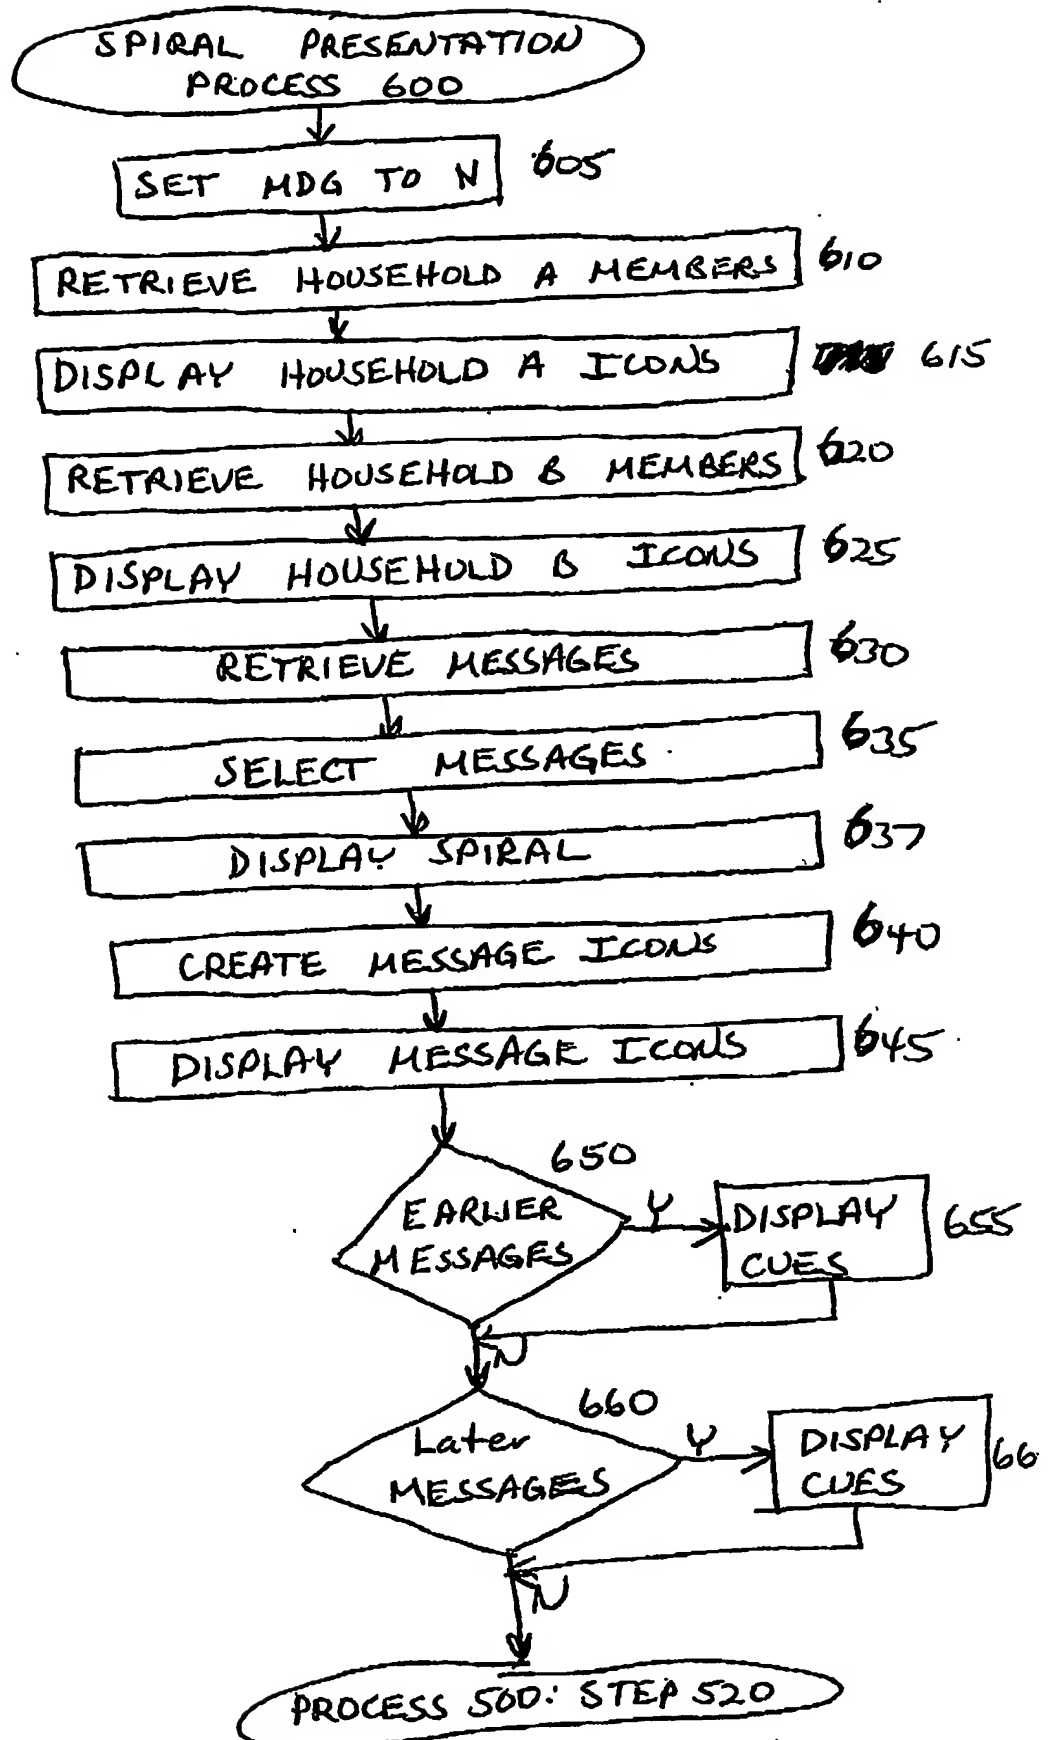 SPIRAL PRESENTATION
PROCESS 600
SET MDG TO N 605
RETRIEVE HOUSEHOLD A MEMBERS 610
DISPLAY HOUSEHOLD A ICONS 615
RETRIEVE HOUSEHOLD B MEMBERS 620
DISPLAY HOUSEHOLD B ICONS 625
RETRIEVE MESSAGES 630
SELECT MESSAGES 635
DISPLAY SPIRAL 637
CREATE MESSAGE ICONS 640
DISPLAY MESSAGE ICONS 645
650
EARLIER
MESSAGES
Y
DISPLAY
CUES
655
N
660
Later
MESSAGES
Y
DISPLAY
CUES
66
N
PROCESS 500: STEP 520